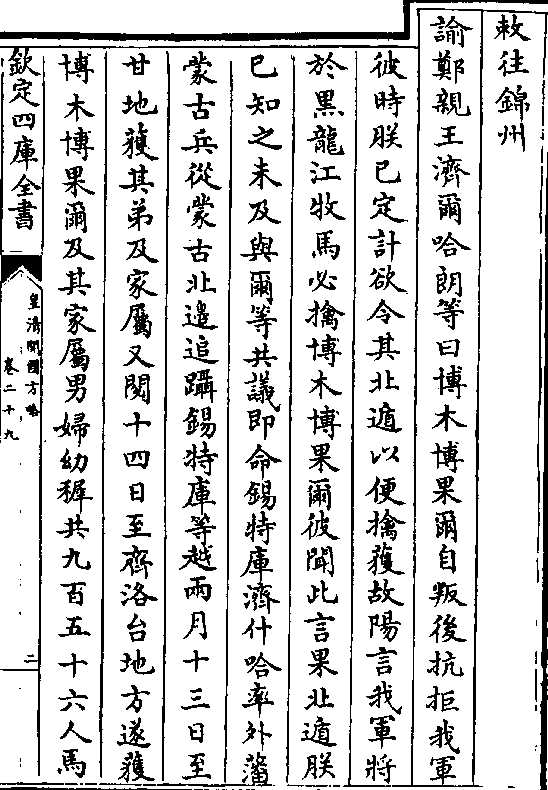 敕往錦州
諭鄭親王濟爾哈朗等曰博木博果爾自叛後抗拒我軍
彼時朕已定計欲令其北遁以便擒獲故陽言我軍將
於黒龍江牧馬必擒博木博果爾彼聞此言果北遁朕
已知之未及與爾等共議即命錫特庫濟什哈率外藩
蒙古兵從蒙古北邊追躡錫特庫等越兩月十三日至
甘地獲其弟及家屬又閱十四日至齊洛台地方遂獲
博木博果爾及其家屬男婦幼穉共九百五十六人馬
欽定四庫全書
皇清開國方略
卷二十九
二